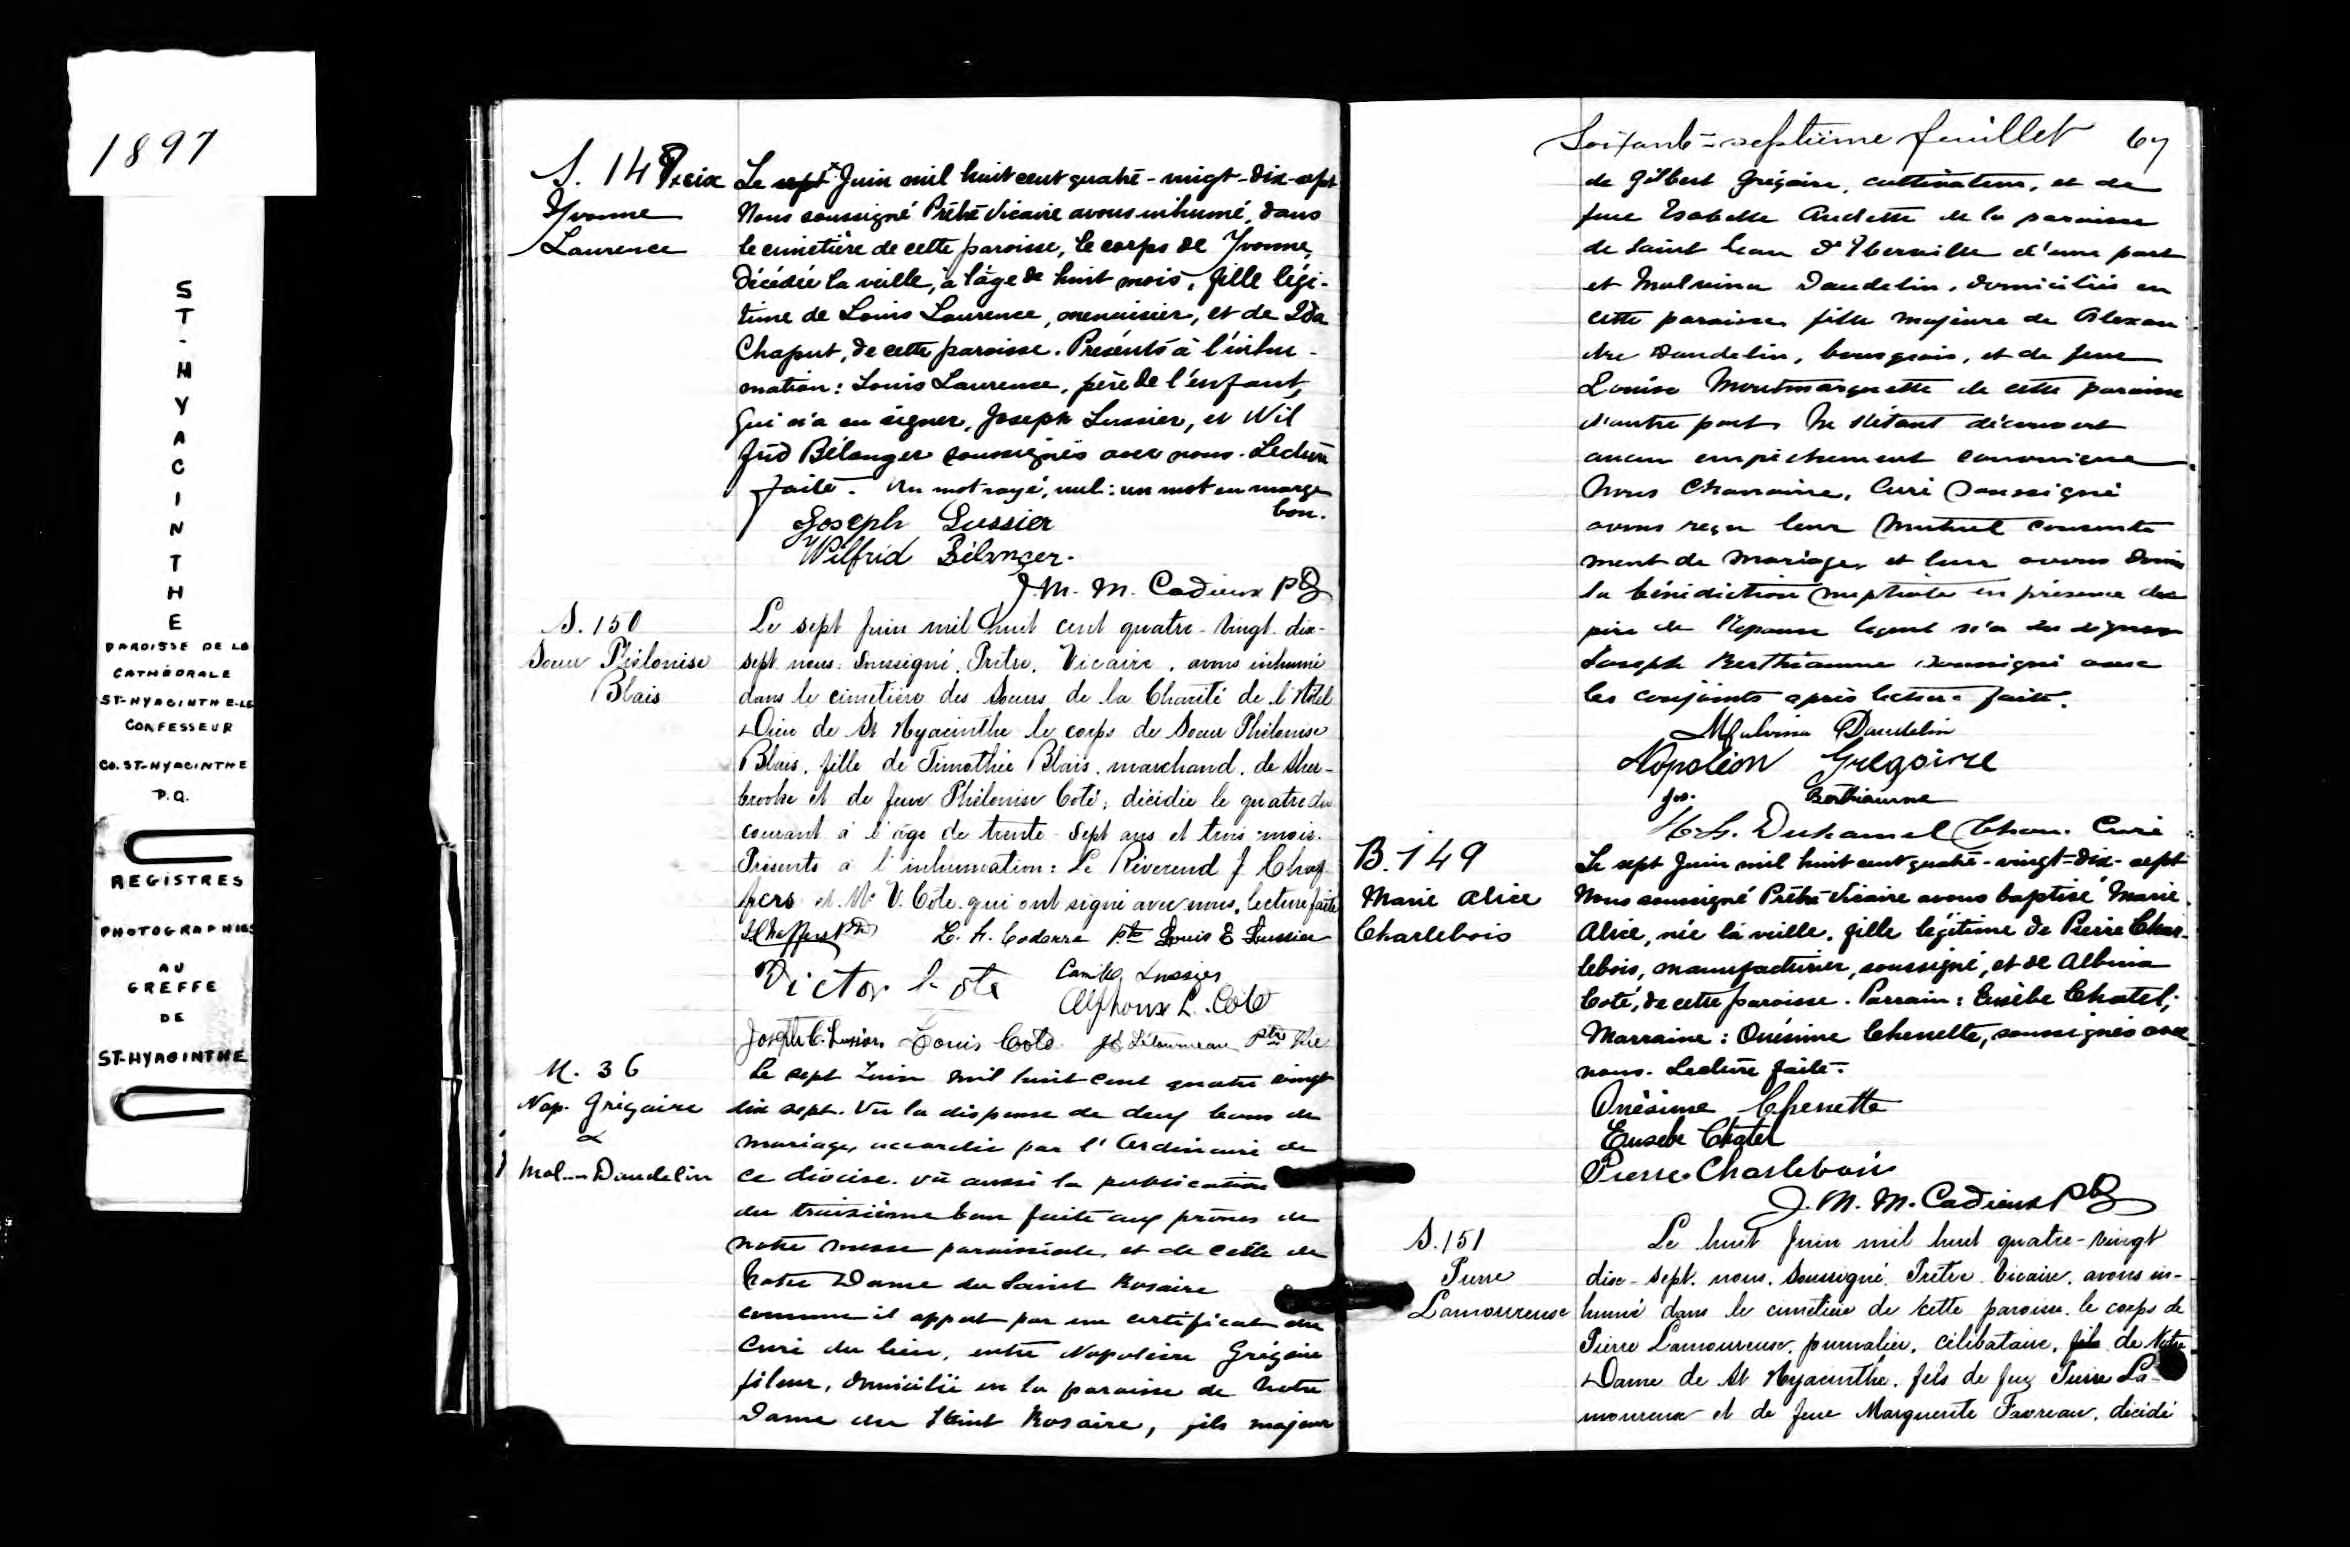 1897
ST-HYACINTHE
PAROISSE DE LA
CATHÉDRALE
ST-HYACINTHE-LE
CONFESSEUR
CO. ST-HYACINTHE
P.Q.
REGISTRES
PHOTOGRAPHIÉS
AU
GREFFE
DE
ST-HYACINTHE
S. 149
Yvonne
Laurence
x six
Le sept x Juin mil huit cent quatre-vingt-dix-sept
Nous soussigné Prêtre Vicaire avons inhumé, dans
le cimetière de cette paroisse, le corps de Yvonne,
décédée la veille, à l'âge de huit mois, fille légi-
time de Louis Laurence, menuisier, et de Ida
Chaput, de cette paroisse. Présents à l'inhu-
mation: Louis Laurence, père de l'enfant,
qui n'a su signer, Joseph Lussier, et Wil
frid Bélanger soussignés avec nous. Lecture
faite. Un mot rayé, nul: un mot en marge
bon.
Joseph Lussier
Wilfrid Bélanger.
J. M. M. Cadieux
S. 150
Soeur Philonise
Blais
Le sept Juin mil huit cent quatre-vingt-dix-
sept nous, soussigné, Prêtre, Vicaire, avons inhumé
dans le cimetière des Soeurs de la Charité de l'Hôtel
Dieu de St Hyacinthe le corps de Soeur Philonise
Blais, fille de Timothée Blais, marchand, de Sher-
brooke et de feue Philonise Coté, décédée le quatre du
courant à l'âge de trente-sept ans et trois mois.
Présents à l'inhumation: Le Révérend J. Chaf
fers et Mr V. Côté qui ont signé avec nous, lecture faite
L. A. Coderre Ptre Louis E Lussier
Victor Coté Camille Lussier
Alphonse L. Coté
Joseph C. Lussier Louis Coté Létourneau Ptre Vic
M. 36
Nap. Grégoire
&
Mal... Daudelin
Le sept Juin mil huit cent quatre vingt
dix sept. Vu la dispense de deux bans de
mariage, accordée par l'Ordinaire de
ce diocèse. vu aussi la publication
du troisième ban faite aux prônes de
notre messe paroissiale, et de celle de
Notre Dame du Saint Rosaire
comme il appert par un certificat du
Curé du lieu, entre Napoléon Grégoire
fileur, domicilié en la paroisse de Notre
Dame du Saint Rosaire, fils majeur
Soixante-septième feuillet 67
de Gilbert Grégoire, cultivateur, et de
feue Isabelle Audette de la paroisse
de Saint Jean d'Iberville d'une part
et Malvina Daudelin, domiciliée en
cette paroisse fille majeure de Alexan
dre Daudelin, bourgeois, et de feue
Louise Montmarquette de cette paroisse
d'autre part, Ne s'étant découvert
aucun empêchement canonique
Nous Chanoine, Curé Soussigné
avons reçu leur mutuel consente
ment de mariage, et leur avons donné
la bénédiction nuptiale en présence du
père de l'épouse lequel n'a su signer
Joseph Berthiaume soussigné avec
les conjoints après lecture faite.
Malvina Daudelin
Napoléon Grégoire
Jos. Berthiaume
Duhamel Chan. Curé
B. 149
Marie Alice
Charlebois
Le sept Juin mil huit cent quatre-vingt-dix-sept
Nous soussigné Prêtre Vicaire avons baptisé Marie
Alice, née la veille, fille légitime de Pierre Char-
lebois, manufacturier, soussigné, et de Albina
Coté, de cette paroisse. Parrain: Eusèbe Chatel;
Marraine: Onésime Chenette, soussignés avec
nous. Lecture faite.
Onésime Chenette
Eusèbe Chatel
Pierre Charlebois
J. M. M. Cadieux
S. 151
Pierre
Lamoureux
Le huit Juin mil huit quatre-vingt
dix-sept, nous, soussigné, Prêtre Vicaire, avons in-
humé dans le cimetière de cette paroisse le corps de
Pierre Lamoureux, journalier, célibataire, fils de Notre
Dame de St Hyacinthe, fils de feu Pierre La-
moureux et de feue Marguerite Favreau, décédé